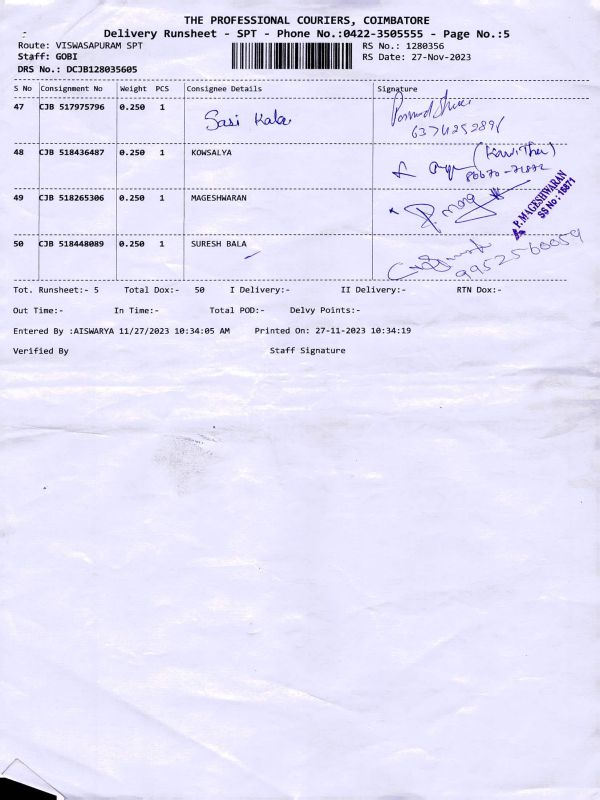 THE PROFESSIONAL COURIERS, COIMBATORE
Delivery Runsheet - SPT - Phone No.:0422-3505555 - Page No.:5
Route: VISWASAPURAM SPT RS No.: 1280356
Staff: GOBI RS Date: 27-Nov-2023
DRS No.: DCJB128035605
S No Consignment No Weight PCS Consignee Details Signature
47 CJB 517975796 0.250 1 Sasi Kala
6374252891
48 CJB 518436487 0.250 1 KOWSALYA (Kavitha)
49 CJB 518265306 0.250 1 MAGESHWARAN
P.MAGESHWARAN
SS No: 16871
50 CJB 518448089 0.250 1 SURESH BALA
9952560059
Tot. Runsheet:- 5 Total Dox:- 50 I Delivery:- II Delivery:- RTN Dox:-
Out Time:- In Time:- Total POD:- Delvy Points:-
Entered By :AISWARYA 11/27/2023 10:34:05 AM Printed On: 27-11-2023 10:34:19
Verified By Staff Signature